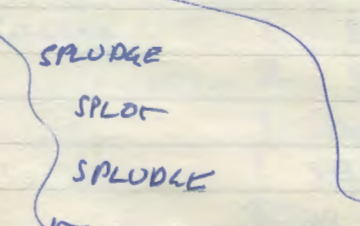 SPLUDGE
SPLOT
SPLUDGE